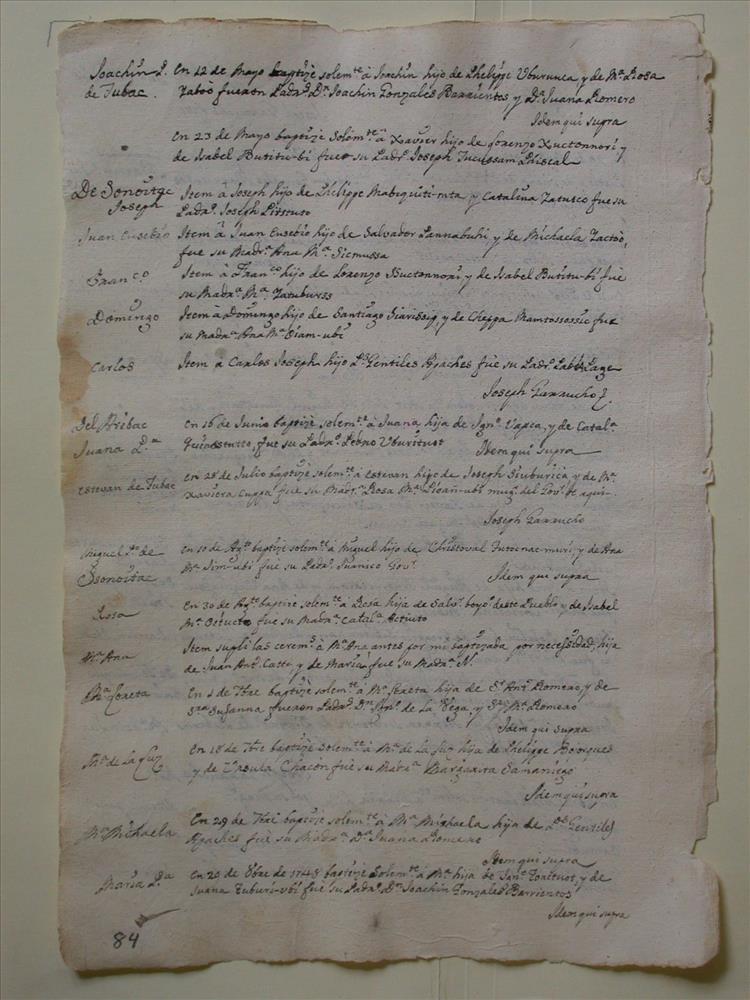 Joachin P. En 12 de Mayo baptize solem.te à Joachin hijo de Phelippe Uburuuca y de M.a Rosa
de Tubac. Fueron Padr.s D.n Joachin Gonzales Barrientos y D.a Juana Romero
Idem qui supra
En 23 de Mayo baptize solem.te à Xavier hijo de Lorenzo Xuctonnori y
de Isabel Butitu-bi fue su Padr.o Joseph Tucussam Phiscal
De Sonoitac Item à Joseph hijo de Phelippe y Catalina Tatusco fue su
Joseph Padr.o Joseph Pirstuto
Juan Eusebio Item à Juan Eusebio hijo de Salvador Pannabuhi y de Michaela Tactòo,
fue su Madr.a Ana M.a Sicmussa
Franc.o Item à Fran.co hijo de Lorenzo Xuctonnori y de Isabel Butitu-bi fue
su Madr.a M.a Tatuburss
Domingo Item à Domingo hijo de Santiago y de Cheppa fue
su Madr.a Ana M.a Siam-ubi
Carlos Item à Carlos Joseph hijo D.s Gentiles Apaches fue su Padr.o
Joseph Garrucho J.
Del Aribac En 16 de Junio baptize solem.te à Juana hija de Ign.o Vapca, y de Catal.a
Juana P.a fue su Padr.o Pedro Uburituot
Idem qui supra
Estevan de Tubac En 28 de Julio baptize solem.te à Estevan hijo de Joseph Siuburica y de M.a
Xaviera Cuppa fue su Madr.a Rosa M.a mug.r del Gov.r de aqui
Joseph Garrucho
Miguel de En 10 de Ag.to baptize solem.te à Miguel hijo de Christoval y de Ana
Ssonoitac M.a Sim-ubi fue su Padr.o Juanico Gov.r
Idem qui supra
Rosa En 30 de Ag.to baptize solem.te à Rosa hija de Salv.r deste Pueblo y de Isabel
M.a fue su Madr.a Catal.a Actiuto
M.a Ana Item supli las cerem.s à M.a Ana antes por mi baptizada por necessidad, hija
de Juan Ant.o Catto y de Maria fue su Madr.a N.
M.a Loreta En 1 de 7bre baptize solem.te à M.a Loreta hija de S.r Ant.o Romero, y de
Sra Susanna fueron Padr.s D.n de la Vega y S.ra M.a Romero
Idem qui supra
M.a de la Luz En 18 de 7bre baptize solem.te à M.a de la Luz hija de Phelippe Bohorques
y de Ursula Chacòn fue su Madr.a Margarita Samaniego
Idem qui supra
M.a Michaela En 29 de 7bre baptize solem.te à M.a Michaela hija de D.s Gentiles
Apaches fue su Madr.a D.a Juana Romero
Idem qui supra
Maria P.a En 20 de 8bre de 1748 baptize solem.te à M.a hija de Ign.o Toaituot, y de
Juana Tuburi-ubi fue su Padr.o D.n Joachin Gonzales Barrientos
Idem qui supra
84